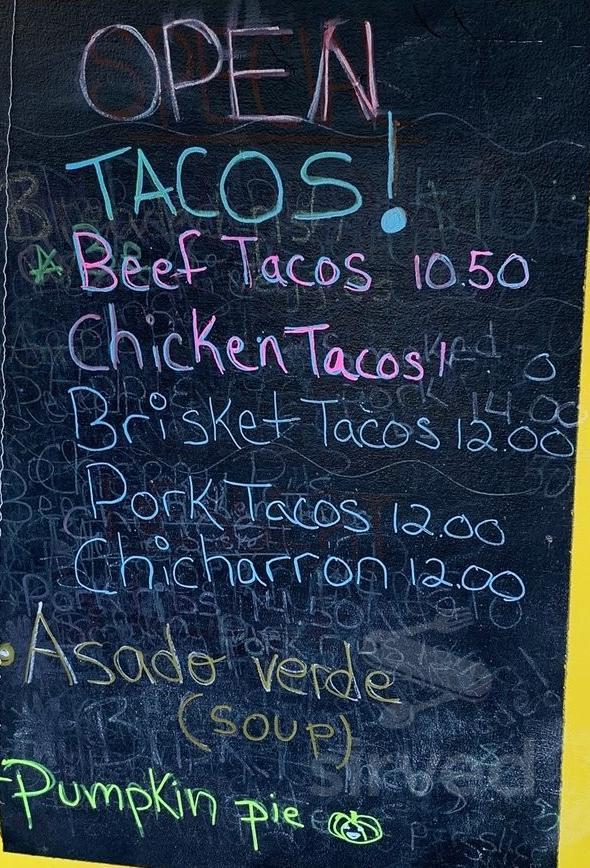 OPEN
TACOS!
Beef Tacos 10.50
Chicken Tacos
Brisket Tacos 12.00
Pork Tacos 12.00
Chicharron 12.00
Asado verde
(soup)
Pumpkin pie
sirved